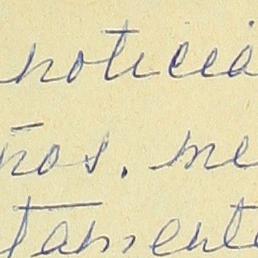 noticia
ños. me
tamente